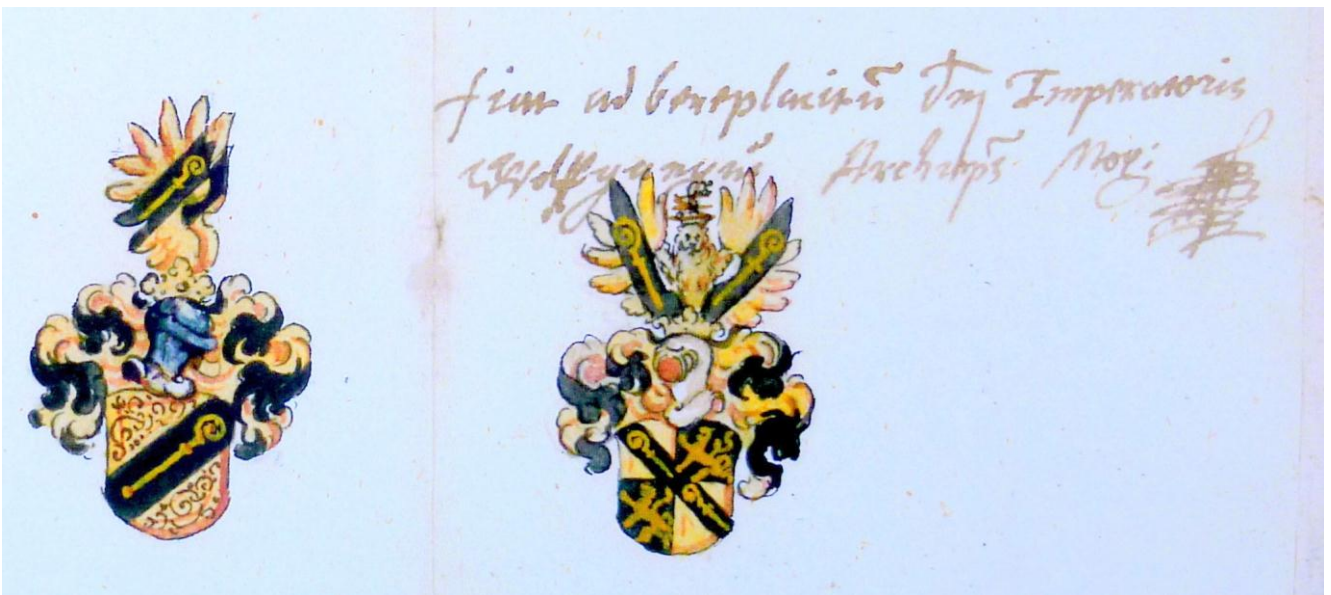 fiat ad beneplacitū Dnj Imperatoris
Wolfgangus Archiep̄s Mog: